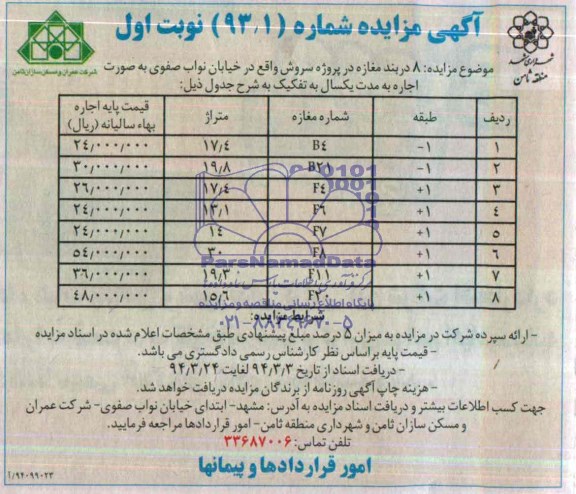 آگهی مزایده شماره (۹۳٫۱) نوبت اول
شرکت عمران و مسکن سازان ثامن
منطقه ثامن
موضوع مزایده: ۸ دربند مغازه در پروژه سروش واقع در خیابان نواب صفوی به صورت
اجاره به مدت یکسال به تفکیک به شرح جدول ذیل:
ردیف طبقه شماره مغازه متراژ قیمت پایه اجاره بهاء سالیانه (ریال)
۱ -۱ B٤ ۱۷٫٤ ۲٤٫۰۰۰٫۰۰۰
۲ -۱ B۲۱ ۱۹٫۸ ۳۰٫۰۰۰٫۰۰۰
۳ +۱ F٤ ۱۷٫٤ ۲٦٫۰۰۰٫۰۰۰
٤ +۱ F٦ ۱۳٫۱ ۲٤٫۰۰۰٫۰۰۰
۵ +۱ F۷ ۱٤ ۲٤٫۰۰۰٫۰۰۰
٦ +۱ F۸ ۳۰ ۵٤٫۰۰۰٫۰۰۰
۷ +۱ F۱۱ ۱۹٫۳ ۳٦٫۰۰۰٫۰۰۰
۸ +۱ ۱۵٫٦ ٤۸٫۰۰۰٫۰۰۰
ParsNamadData
پایگاه اطلاع رسانی مناقصه و مزایده
۰۲۱-۸۸۳۴۹۶۷۰-۵
شرایط مزایده:
- ارائه سپرده شرکت در مزایده به میزان ۵ درصد مبلغ پیشنهادی طبق مشخصات اعلام شده در اسناد مزایده
- قیمت پایه بر اساس نظر کارشناس رسمی دادگستری می باشد.
- دریافت اسناد از تاریخ ۹٤٫۳٫۳ لغایت ۹٤٫۳٫۲٤
- هزینه چاپ آگهی روزنامه از برندگان مزایده دریافت خواهد شد.
جهت کسب اطلاعات بیشتر و دریافت اسناد مزایده به آدرس: مشهد- ابتدای خیابان نواب صفوی- شرکت عمران
و مسکن سازان ثامن و شهرداری منطقه ثامن- امور قراردادها مراجعه فرمایید.
تلفن تماس: ۳۳٦۸۷۰۰٦
امور قراردادها و پیمانها
۹٤۰۹۹۰۲۳/آ